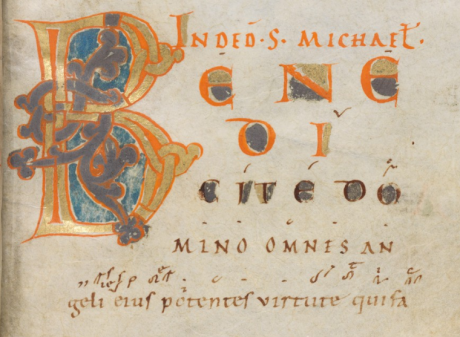 IN DED·S·MICHAEL·
BENE
DI
CITE DO
MINO OMNES AN
geli eius potentes virtute qui fa